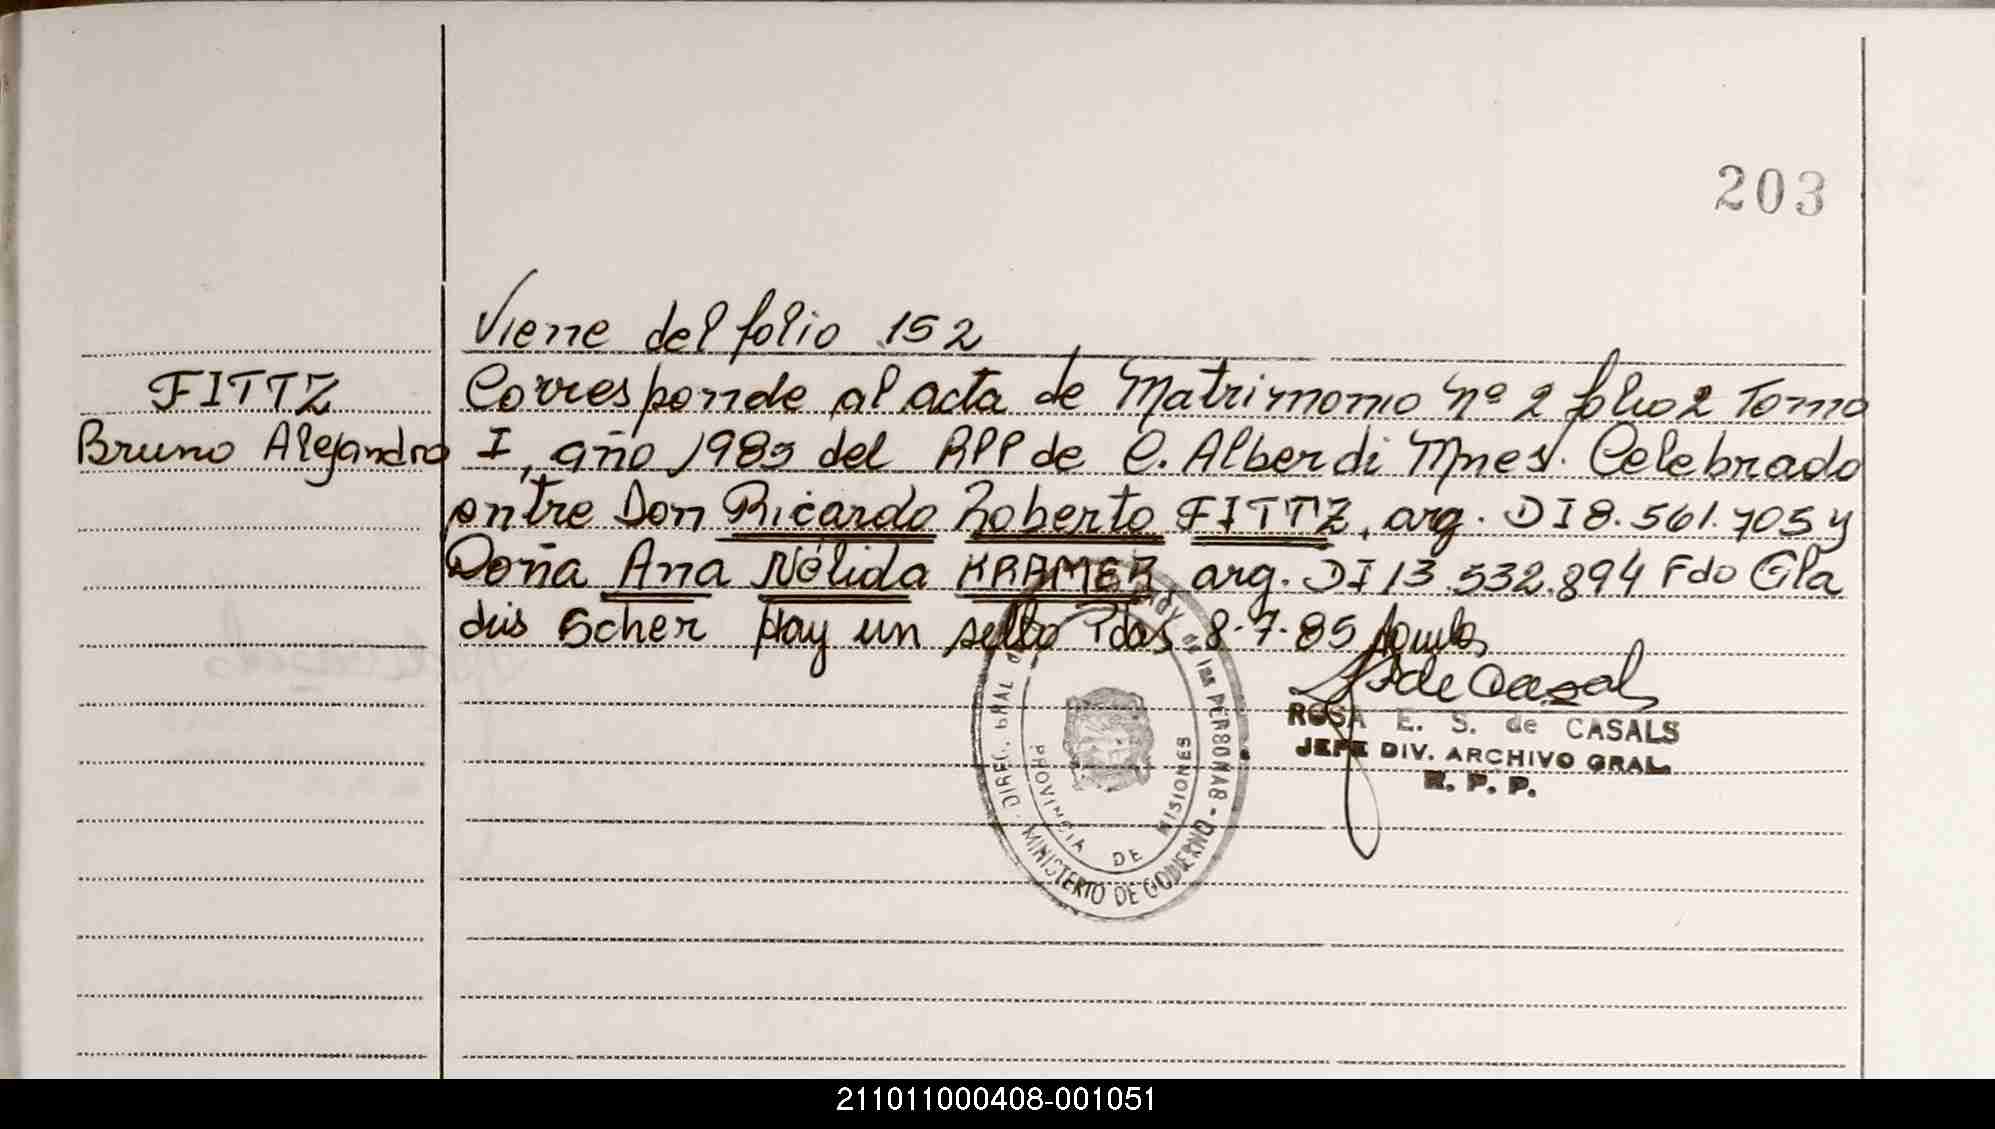 203
Viene del folio 152
FITTZ
Bruno Alejandro
Corresponde al acta de Matrimonio nº 2 folio 2 Tomo
I, año 1983 del RPP de C. Alberdi Mnes. Celebrado
entre Don Ricardo Roberto FITTZ, arg. DI 8.561.705 y
Doña Ana Nélida KRAMER, arg. DI 13.532.894 Fdo Gla
dis Scher Hay un sello Pdas 8-7-85
ROSA E. S. de CASALS
JEFE DIV. ARCHIVO GRAL.
R. P. P.
DIREC. GRAL de las PERSONAS - MINISTERIO DE GOBIERNO
PROVINCIA DE MISIONES
211011000408-001051